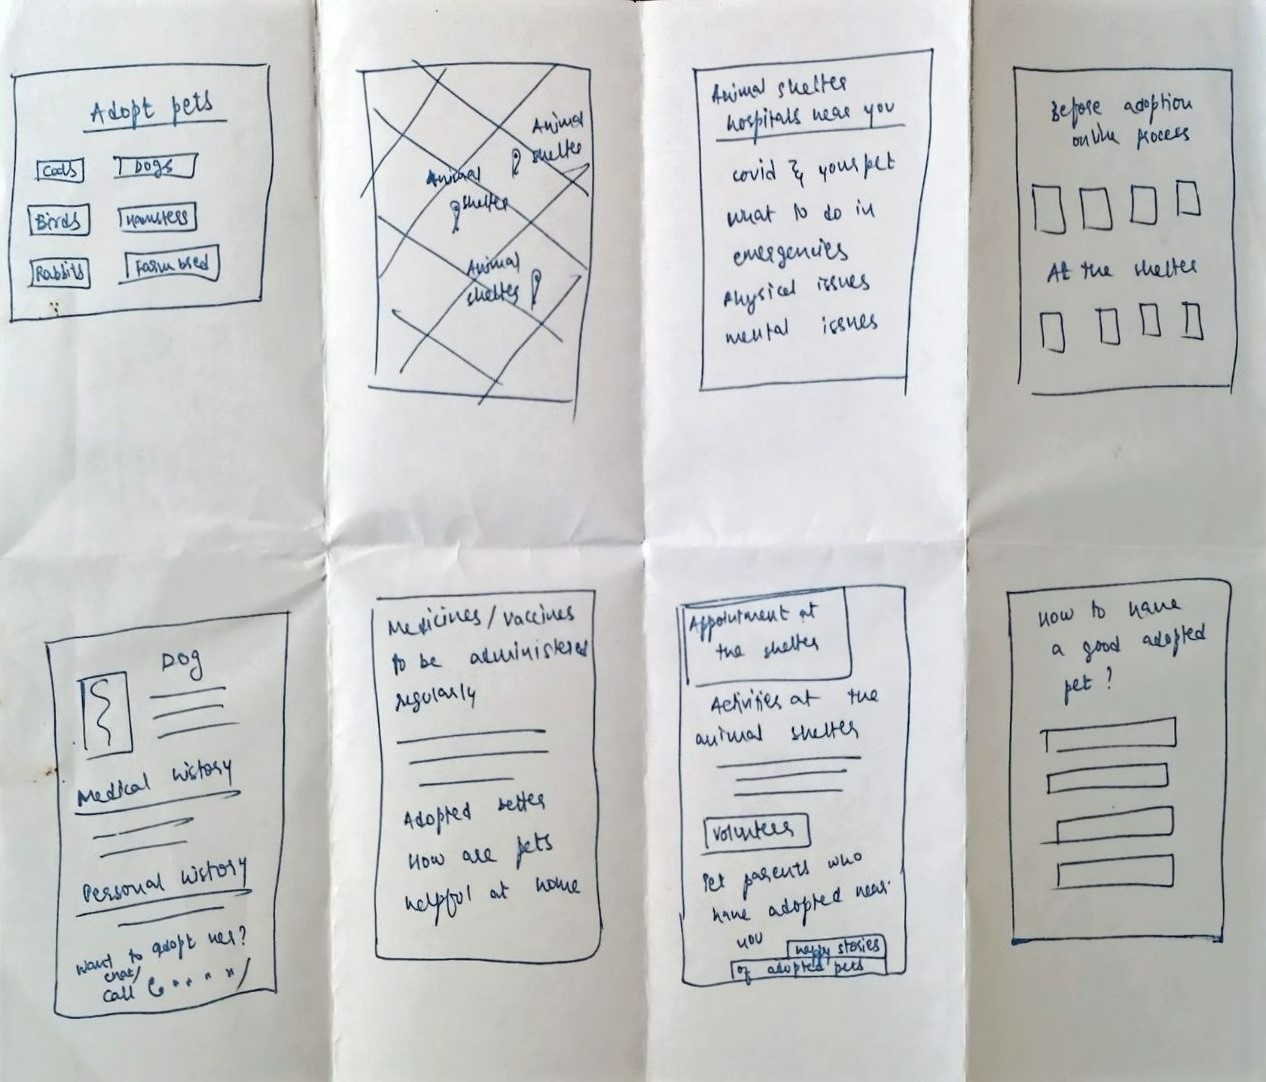 Adopt pets
Cats
Dogs
Birds
Hamsters
Rabbits
Farm bred
Animal
shelter
Animal
shelter
Animal
shelter
Animal shelter
hospitals near you
covid & your pet
what to do in
emergencies
Physical issues
mental issues
Before adoption
online process
At the shelter
Dog
Medical history
Personal history
Want to adopt her?
chat/
call
Medicines/vaccines
to be administered
regularly
Adopted better
How are pets
helpful at home
Appointment at
the shelter
Activities at the
animal shelter
Volunteer
Pet parents who
have adopted near
you
happy stories
of adopted pets
How to have
a good adopted
pet?